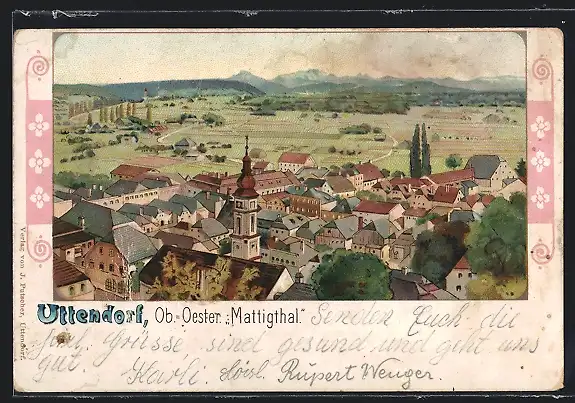 Uttendorf, Ob. Oester. „Mattigthal."
Senden Euch die
Grüsse sind gesund und geht uns
gut. Karli Loisl Rupert Wenger.
Verlag von J. Putscher, Uttendorf.